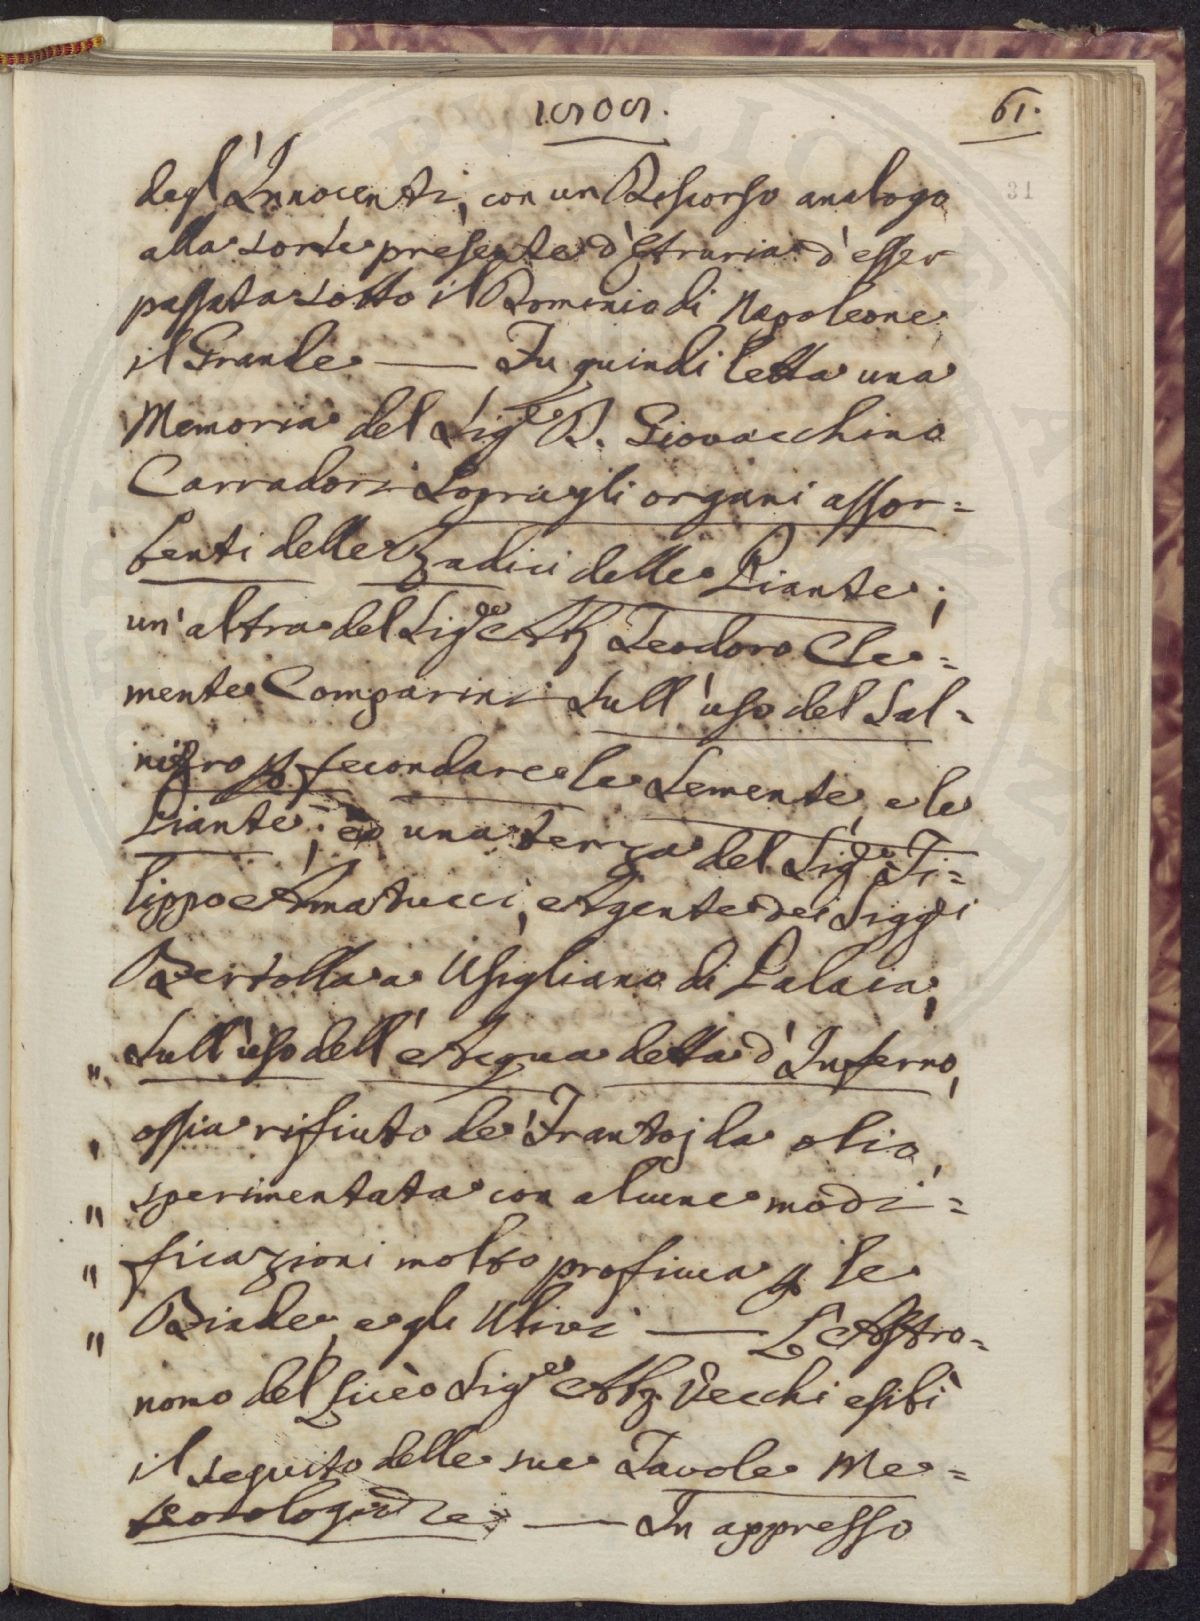 1808.
61.
31
degl'Innocenti, con un Discorso analogo
alla sorte presente d'Etruria d'esser
passata sotto il Dominio di Napoleone
il Grande —— Fu quindi letta una
Memoria del Sig.e D. Giovacchino
Carradori Sopra gli organi assor=
benti delle Radici delle Piante;
un'altra del Sig.re Ab. Teodoro Cle=
mente Comparini Sull'uso del Sal=
nitro p fecondare le Semente, e le
Piante; ed una terza del Sig.e Fi=
lippo Amatucci, Agente dei Sigg.ri
Bertolla a Usigliano di Palaia,
" Sull'uso dell'Acqua detta d'Inferno,
" ossia rifiuto de' Frantoj da olio,
" sperimentata con alcune modi=
" ficazioni molto proficua p le
" Biade, e gli Ulivi —— L'Astro=
nomo del Liceo Sig.e Ab. Vecchi esibì
il seguito delle sue Tavole Me=
teorologiche; —— In appresso